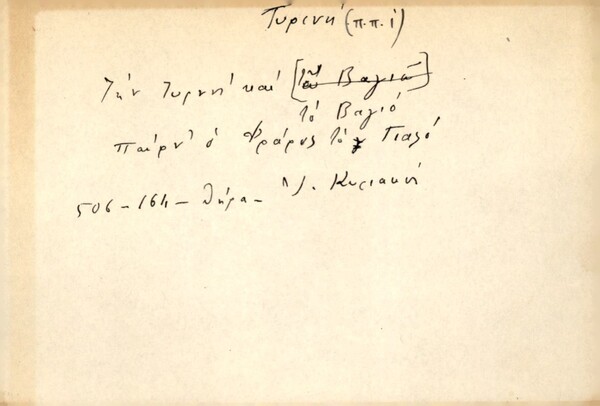 Τυρινή (π.π.ι)
Τήν Τυρινή καί [τά Βαγιά]
τό Βαγιό
παίρν' ὁ Φράρος τό Γιαλό
506-164- Θήρα- Κυριακή